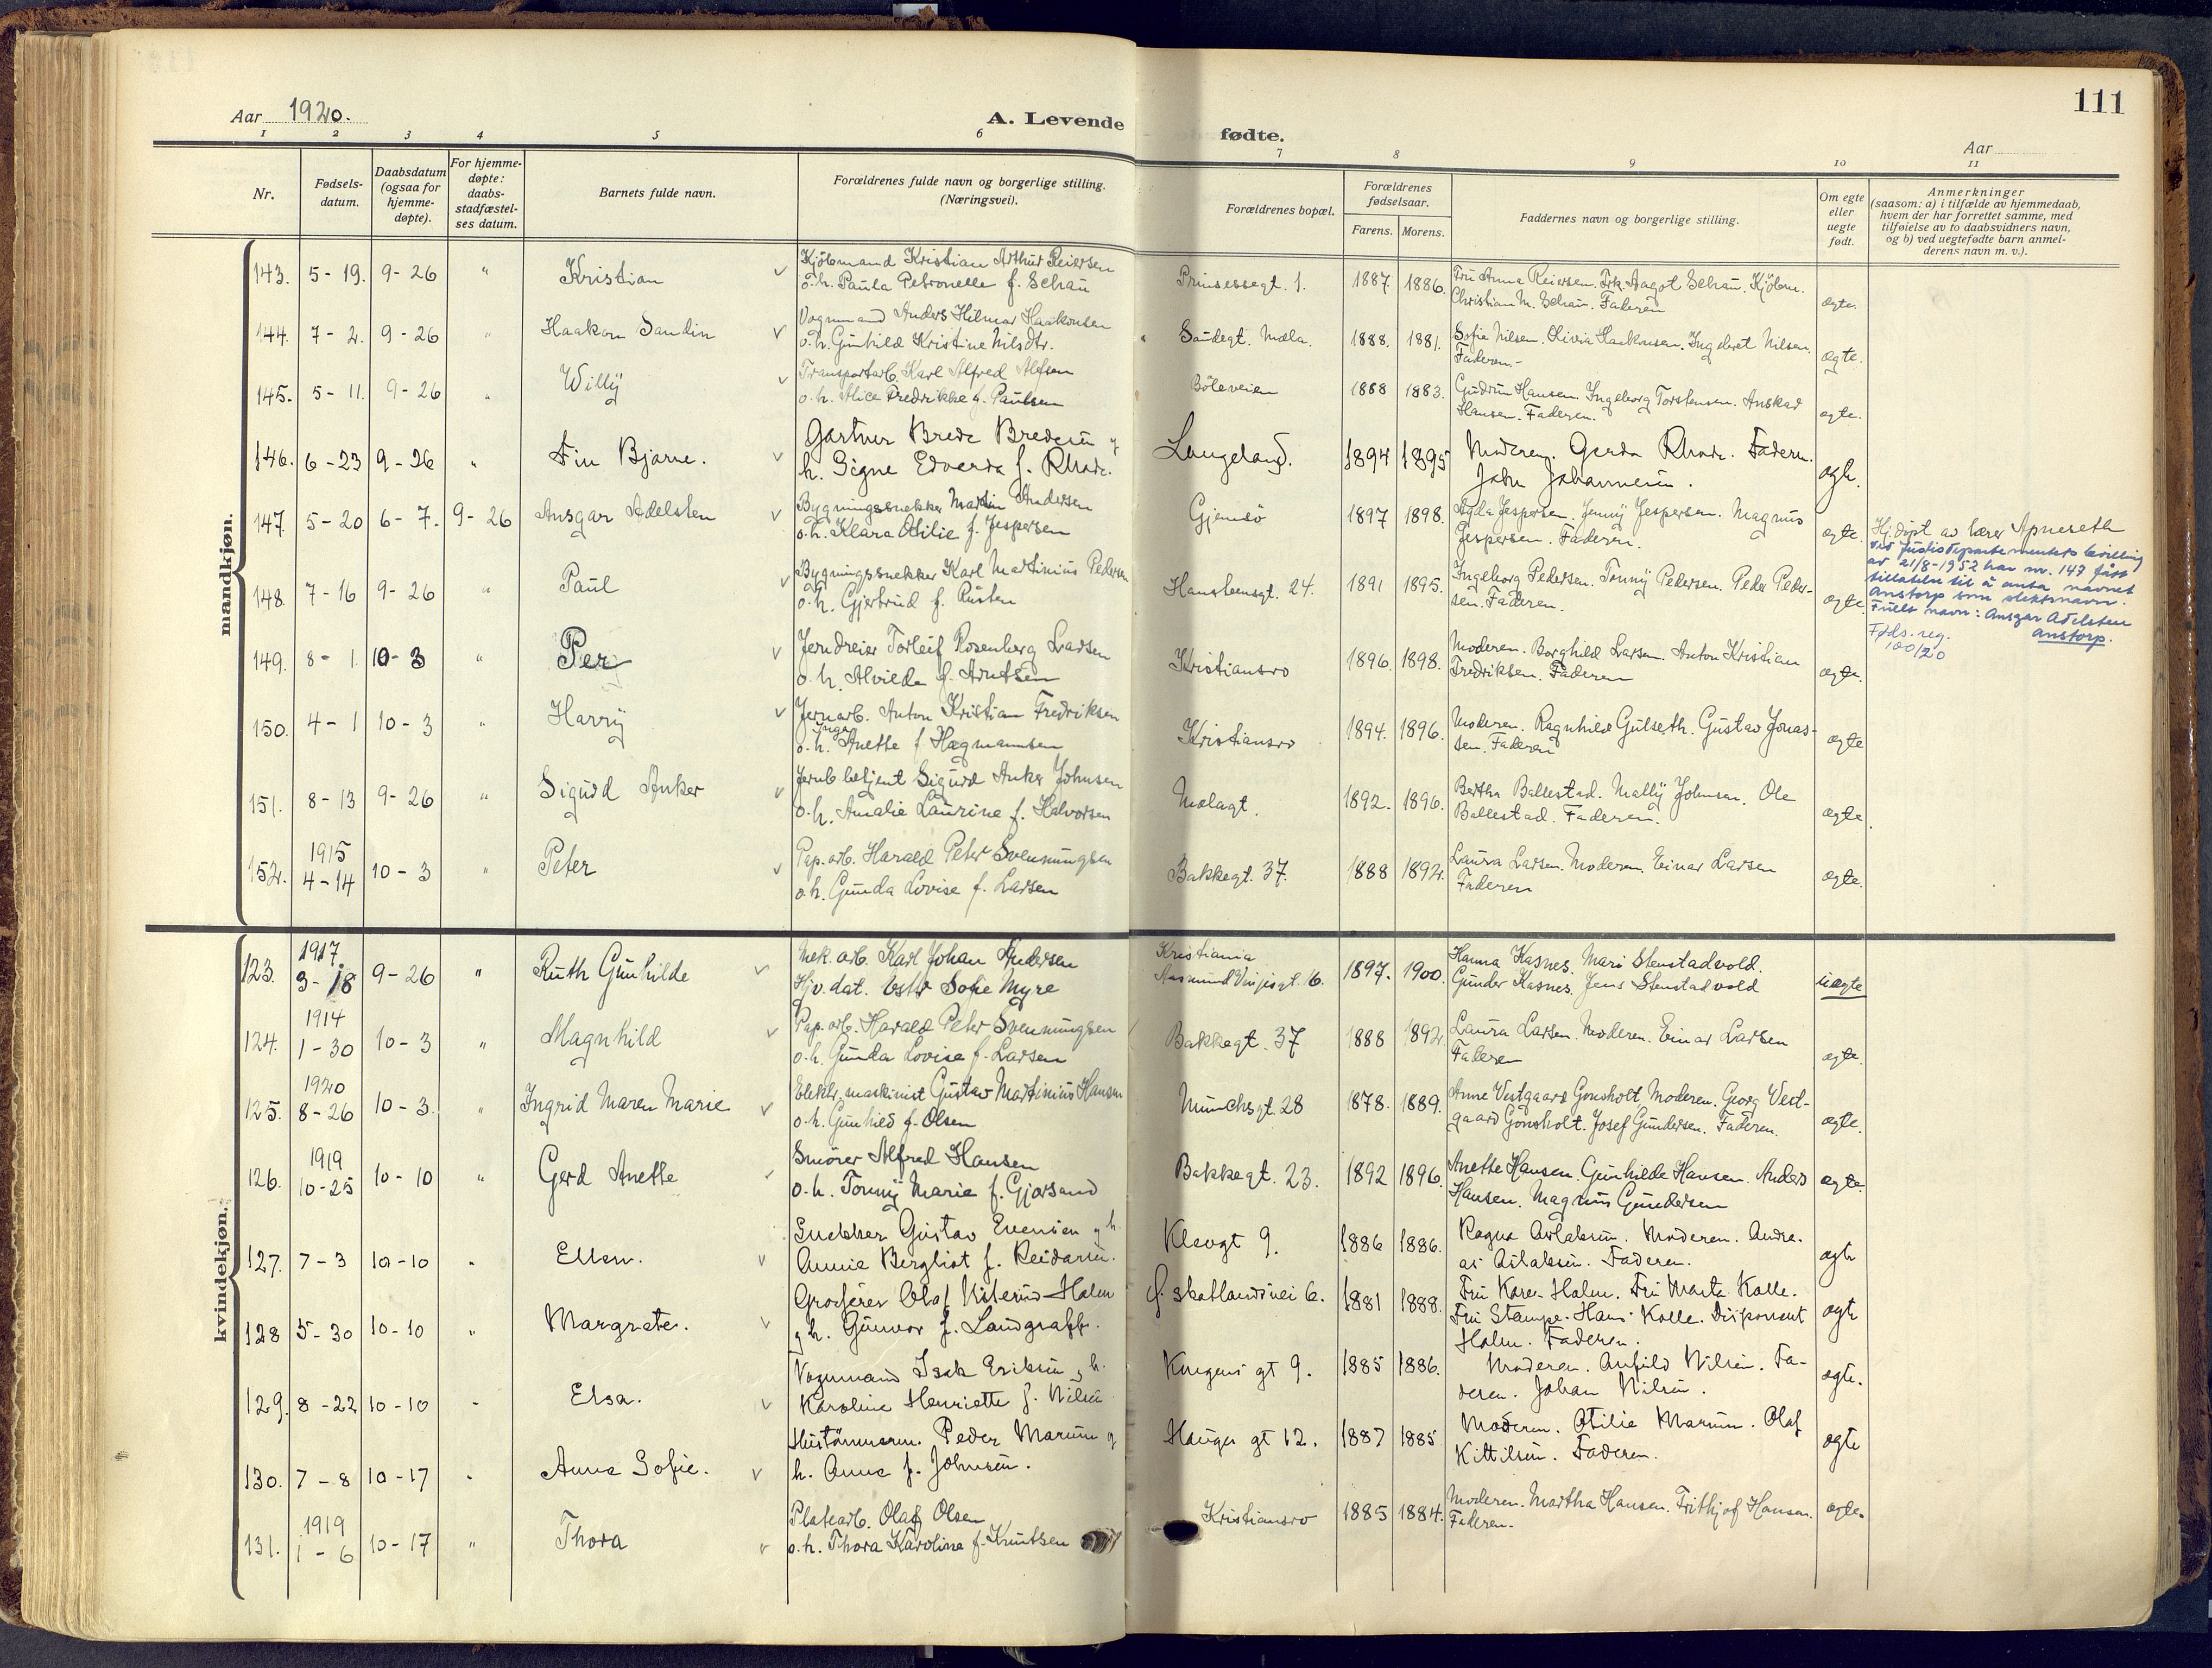 111
Aar 1920.
A. Levende fødte.
Aar
1 2 3 4 5 6 7 8 9 10 11
Nr.
Fødsels-
datum.
Daabsdatum
(ogsaa for
hjemme-
døpte).
For hjemme-
døpte:
daabs-
stadfæstel-
ses datum.
Barnets fulde navn.
Forældrenes fulde navn og borgerlige stilling.
(Næringsvei).
Forældrenes bopæl.
Forældrenes
fødselsaar.
Farens. Morens.
Faddernes navn og borgerlige stilling.
Om egte
eller
uegte
født.
Anmerkninger
(saasom: a) i tilfælde av hjemmedaab,
hvem der har forrettet samme, med
tilføielse av to daabsvidners navn,
og b) ved uegtefødte barn anmel-
derens navn m. v.).
mandkjøn.
143. 5-19. 9-26 " Kristian v Kjöbmand Kristian Arthur Reiersen Prinsessegt. 1. 1887. 1886. Fru Anna Reiersen. Frk. Aagot Schau. Kjöbm.
o. h. Paula Petronelle f. Schau Christian M. Schau. Faderen ægte.
144. 7-2. 9-26 " Haakon Sandin v Vognmand Anders Hilmar Haakonsen Saudegt. Mæla. 1888. 1881. Sofie Nilsen. Olivia Haakonsen. Ingebret Nilsen.
o. h. Gunhild Kristine Nilsdtr. Faderen.- ægte.
145. 5-11. 9-26 " Willy v Transportarb. Karl Alfred Alfsen Böleveien 1888 1883. Gudrun Hansen. Ingeborg Torstensen. Anskar
o. h. Alice Fredrikke f. Paulsen Hansen. Faderen. ægte.
146. 6-23 9-26 " Fin Bjarne. v Gartner Brede Bredesen og Langeland. 1894 1895 Moderen. Gerda Rhode. Faderen.
h. Signe Edverda f. Rhode. John Johannesen. ægte.
147. 5-20 6-7. 9-26 Ansgar Adelsten v Bygningssnekker Martin Andersen Gjemsö 1897 1898. Agda Jespersen. Jenny Jespersen. Magnus
o. h. Klara Otilie f. Jespersen Jespersen. Faderen. ægte.
Hj. døpt av lærer Apneseth
Ved Justisdepartementets bevilling
av 21/8-1952 har nr. 147 fått
tillatelse til å anta navnet
Anstorp som slektsnavn.
Fullt navn: Ansgar Adelsten
Anstorp.
Føds. reg.
100/20
148. 7-16 9-26 " Paul v Bygningssnekker Karl Martinius Pedersen Hansteensgt. 24. 1891 1895. Ingeborg Pedersen. Tonny Pedersen. Peder Peder-
o. h. Gjertrud f. Rusten sen. Faderen. ægte.
149. 8-1. 10-3 " Per v Jerndreier Torleif Rosenberg Larsen Kristiansro 1896. 1898. Moderen. Borghild Larsen. Anton Kristian
o. h. Alvilde f. Arntsen Fredriksen. Faderen ægte.
150. 4-1 10-3 " Harry v Jernarb. Anton Kristian Fredriksen Kristiansro 1894. 1896. Moderen. Ragnhild Gulseth. Gustav Jonas-
o. h. Inga Anette f. Hagmannsen sen. Faderen ægte
151. 8-13 9-26 " Sigurd Anker v Jernb. betjent Sigurd Anker Johnsen Mælagt. 1892. 1896. Bertha Ballestad. Mally Johnsen. Ole
o. h. Amalie Laurine f. Halvorsen Ballestad. Faderen. ægte.
152. 1915 4-14 10-3 " Peter v Pap. arb. Harald Peter Svenningsen Bakkegt. 37. 1888 1892. Laura Larsen. Moderen. Einar Larsen
o. h. Gunda Lovise f. Larsen Faderen ægte.
kvindekjøn.
123. 1917. 3-18 9-26 " Ruth Gunhilde v Mek. arb. Karl Johan Andersen Kristiania 1897. 1900. Hanna Kasnes. Mari Stenstadvold.
Hjv. dat. Ester Sofie Myre Aasmund Vinjesgt. 16. Gunder Kasnes. Jens Stenstadvold uægte
124. 1914 1-30 10-3 " Magnhild v Pap. arb. Harald Peter Svenningsen Bakkegt. 37 1888 1892. Laura Larsen. Moderen. Einar Larsen
o. h. Gunda Lovise f. Larsen Faderen ægte.
125. 1920 8-26 10-3. " Ingrid Maren Marie v Elektr. maskinist Gustav Martinius Hansen Munchsgt. 28 1878. 1889. Anne Vestgaard Gonsholt. Moderen. Georg Vest-
o. h. Gunhild f. Olsen gaard Gonsholt. Josef Gundersen. Faderen. ægte.
126. 1919 10-25 10-10 " Gerd Anette Smører Alfred Hansen Bakkegt. 23. 1892 1896. Anette Hansen. Gunhilde Hansen. Anders
o. h. Tonny Marie f. Gjorsand Hansen. Magnus Gundersen ægte.
127. 7-3 10-10 " Ellen. v Snekker Gustav Evensen og h. Klevgt 9. 1886 1886. Ragna Aslaksen. Moderen. Andre-
Annie Bergliot f. Reidarsen. as Aslaksen. Faderen. ægte
128 5-30 10-10 " Margrete. v Grosserer Olaf Kiterud Holm f. Skotlandsvei 6. 1881 1888. Fru Karen Holm. Fru Marta Kolle.
og h. Gunvor f. Landgraff. Fru Stampe. Hans Kolle. Disponent
Holm. Faderen. ægte
129. 8-22 10-10 " Elsa. v Vognmand Isak Eriksen og h. Kongens gt 9. 1885 1886. Moderen. Anfild Nilsen. Fa-
Karoline Henriette f. Nilsen deren. Johan Nilsen. ægte.
130. 7-8 10-17 " Anna Sofie. v Hustömmerm. Peder Marum og Hauges gt 12. 1887 1885 Moderen. Otilie Marum. Olaf
h. Anna f. Johnsen. Kittilsen. Faderen. ægte
131. 1919 1-6 10-17 " Thora v Platearb. Olaf Olsen Kristiansro 1885 1884. Moderen. Martha Hansen. Frithjof Hansen.
o. h. Thora Karoline f. Knutsen Faderen. ægte.